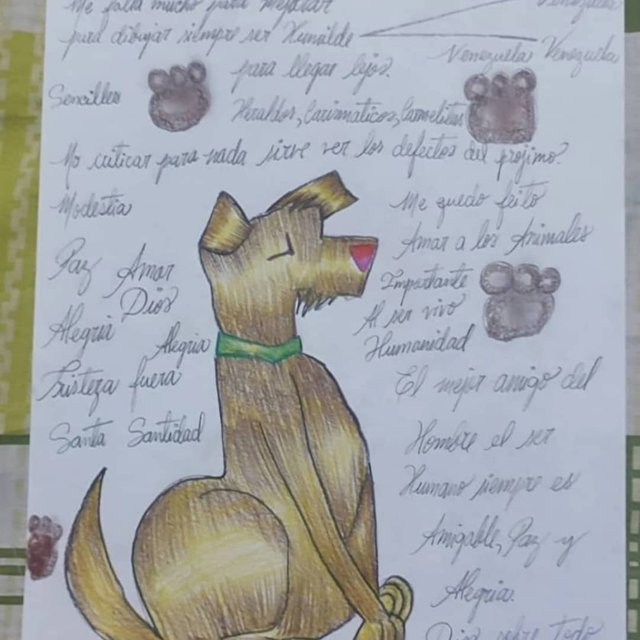 Me falta mucho para mejorar
para dibujar siempre ser Humilde
para llegar lejos.
Venezuela
Venezuela Venezuela
Sencilles
Heraldos, Carismaticos, Carmelitas
No criticar para nada sirve ver los defectos del projimo.
Modestia
Me quedo feito
Amar a los Animales
Paz Amor
Dios
Importante
Al ser vivo
Humanidad
Alegria Alegria
Tristeza fuera
Santa Santidad
El mejor amigo del
Hombre el ser
Humano siempre es
Amigable, Paz y
Alegria
Dios sobre todo